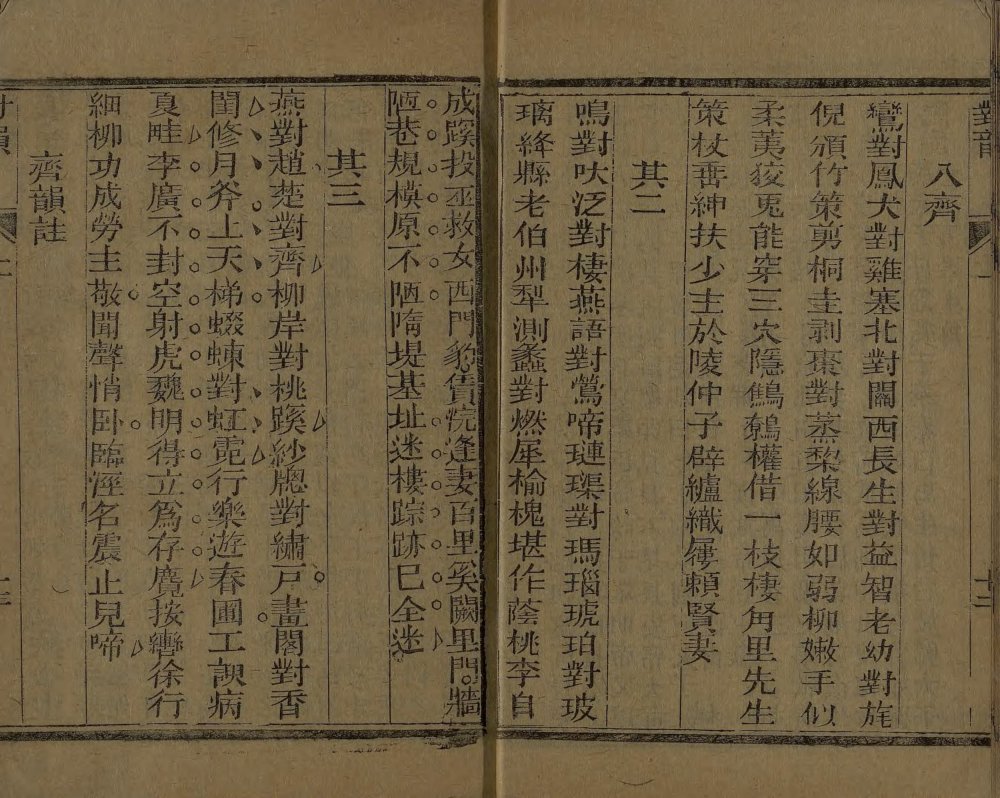 八齊
鸞對鳳犬對雞塞北對關西長生對益智老幼對旄
倪頒竹策剪桐圭剥棗對蒸梨線腰如弱柳嫩手似
柔荑狡兎能穿三穴隱鷦鷯權借一枝棲甪里先生
策杖垂紳扶少主於陵仲子辟纑織屨頼賢妻
其二
鳴對吠泛對棲燕語對鶯啼璉璖對瑪瑙琥珀對玻
璃絳縣老伯州犁測蠡對燃犀榆槐堪作蔭桃李自
成蹊投巫救女西門豹賃浣逢妻百里奚闕里門牆
陋巷規模原不陋隋堤基址迷樓踪跡已全迷
其三
燕對趙楚對齊柳岸對桃蹊紗牕對繡戸畫閣對香
閨修月斧上天梯蝃蝀對虹霓行樂遊春圃工諛病
夏畦李廣不封空射虎魏明得立爲存麑按轡徐行
細柳功成勞主敬聞聲悄卧臨涇名震止兒啼
齊韻註
對韻
十二